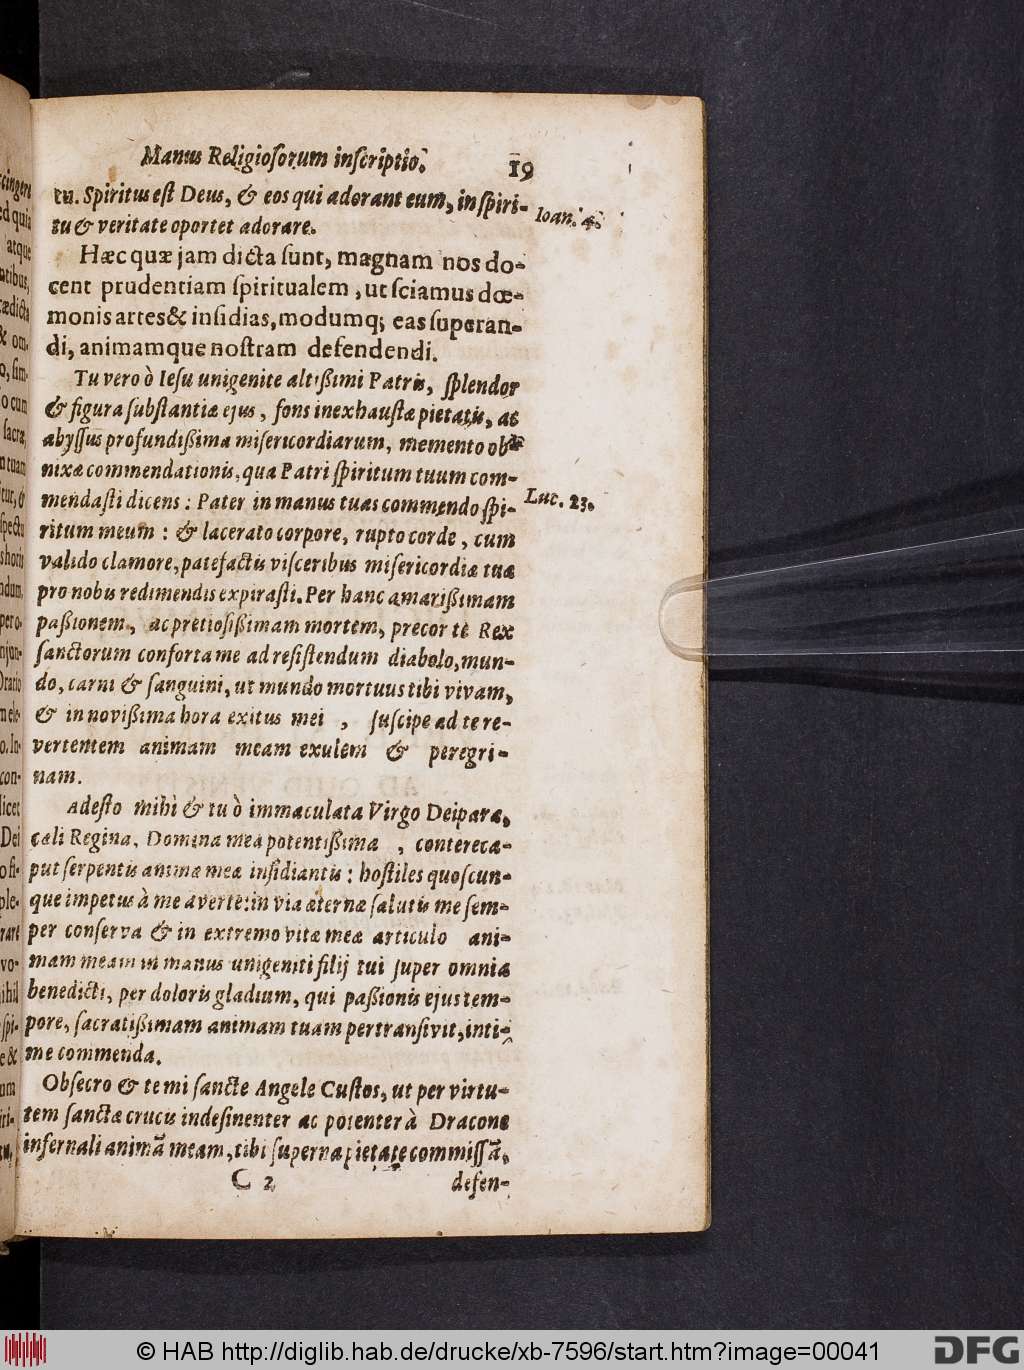 Manus Religiosorum inscriptio. 19
tu. Spiritus est Deus, & eos qui adorant eum, in spiri-
tu & veritate oportet adorare.
Ioan. 4.
Hæc quæ jam dicta sunt, magnam nos do-
cent prudentiam spiritualem, ut sciamus dœ-
monis artes & insidias, modumq; eas superan-
di, animamque nostram defendendi.
Tu vero ò Iesu unigenite altißimi Patris, splendor
& figura substantiæ ejus, fons inexhaustæ pietatis, ac
abyssus profundißima misericordiarum, memento ob-
nixæ commendationis, qua Patri spiritum tuum com-
mendasti dicens: Pater in manus tuas commendo spi-
Luc. 23.
ritum meum: & lacerato corpore, rupto corde, cum
valido clamore, patefactis visceribus misericordiæ tuæ
pro nobis redimendis expirasti. Per hanc amarißimam
paßionem, ac pretiosißimam mortem, precor te Rex
sanctorum conforta me ad resistendum diabolo, mun-
do, carni & sanguini, ut mundo mortuus tibi vivam,
& in novißima hora exitus mei, suscipe ad te re-
vertentem animam meam exulem & peregri-
nam.
Adesto mihi & tu ò immaculata Virgo Deipara,
cæli Regina, Domina mea potentißima, contere ca-
put serpentis animæ meæ insidiantis: hostiles quoscun-
que impetus à me averte: in via æternæ salutis me sem-
per conserva & in extremo vitæ meæ articulo ani-
mam meam in manus unigeniti filij tui super omnia
benedicti, per doloris gladium, qui paßionis ejus tem-
pore, sacratißimam animam tuam pertransivit, inti-
me commenda.
Obsecro & te mi sancte Angele Custos, ut per virtu-
tem sanctæ crucis indesinenter ac potenter à Dracone
infernali animã meam, tibi superna pietate commissã,
C 2 defen-
© HAB http://diglib.hab.de/drucke/xb-7596/start.htm?image=00041
DFG